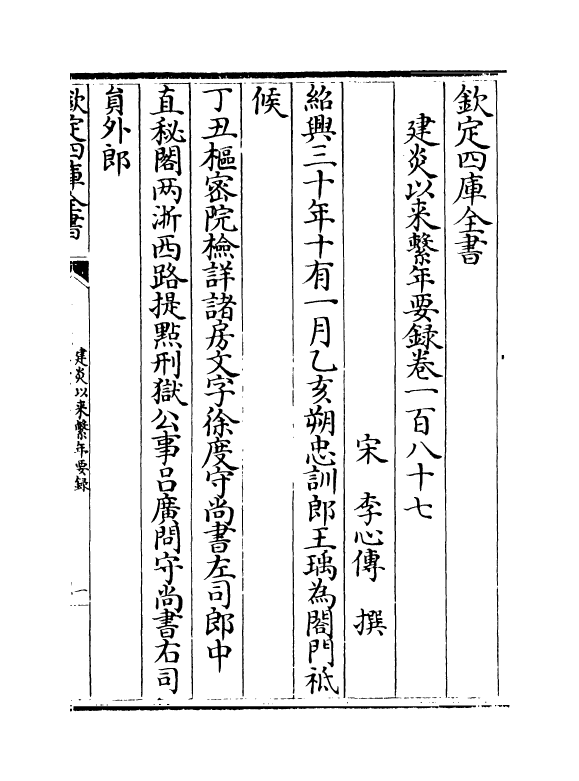 欽定四庫全書
建炎以来繫年要録卷一百八十七
宋 李心傳 撰
紹興三十年十有一月乙亥朔忠訓郎王瑀為閤門祗
候
丁丑樞密院檢詳諸房文字徐度守尚書左司郎中
直秘閣两浙西路提點刑獄公事吕廣問守尚書右司
員外郎
欽定四庫全書
建炎以来繫年要録
一